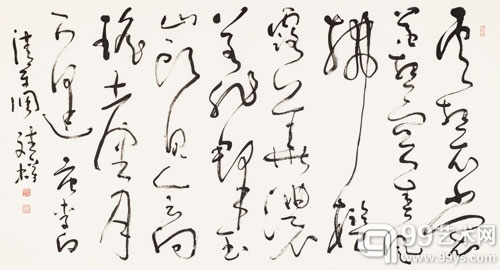 雲想衣裳
花想容春風
拂檻
露華濃
若非群玉
山頭見會向
瑤臺月
下逢 唐李白
清平調
99艺术网
www.99ys.com